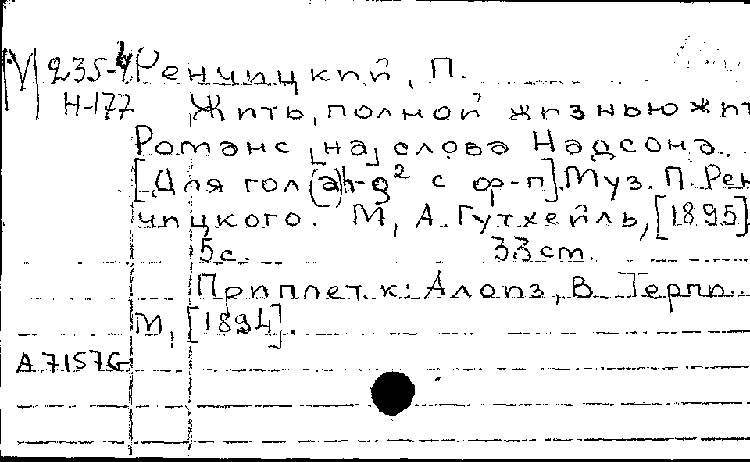 М 235-4 Ренчицкий, П.
Н-177 Жить, полной жизнью жит
Романс на слова Надсона.
[Для гол(а) h-g² с ф-п]. Муз. П. Рен
чицкого. М, А. Гутхейль, [1895]
5 с. 33 cm.
Приплет. к: Алоиз, В. Терпи.
М, [1894].
А 7157G